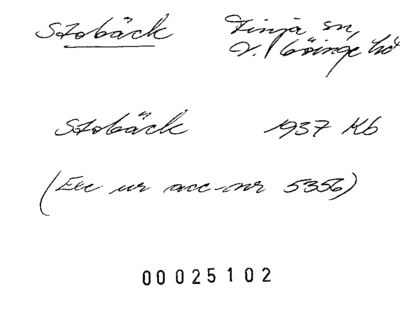 Stobäck Finja sn,
V. Göinge hd
Stobäck 1937 Kb
(Exc ur acc-nr 5356)
00025102